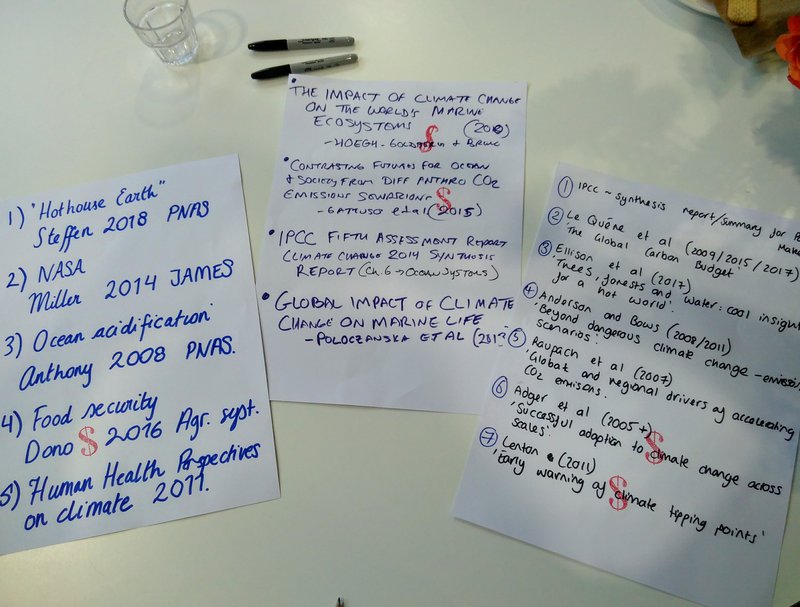 1) "Hothouse Earth"
Steffen 2018 PNAS
2) NASA
Miller 2014 JAMES
3) Ocean acidification
Anthony 2008 PNAS.
4) Food security
Dono $ 2016 Agr. syst.
5) Human Health Perspectives
on climate 2011.
• THE IMPACT OF CLIMATE CHANGE
ON THE WORLD'S MARINE
ECOSYSTEMS $
- HOEGH-GULDBERG + BRUNO
• CONTRASTING FUTURES FOR OCEAN
+ SOCIETY FROM DIFF ANTHRO CO2
EMISSIONS $
- GATTUSO et al (2015)
• IPCC FIFTH ASSESSMENT REPORT
CLIMATE CHANGE 2014 SYNTHESIS
REPORT (Ch. 6 → OCEAN SYSTEMS)
• GLOBAL IMPACT OF CLIMATE
CHANGE ON MARINE LIFE
- POLOCZANSKA ET AL (201
① IPCC - synthesis report/summary for
② Le Quéne et al (2009/2015/2017)
'The Global Carbon Budget'
③ Ellison et al (2017)
'Trees, forests and water: cool insight
for a hot world'.
④ Anderson and Bows (2008/2011)
'Beyond dangerous climate change - emission
scenarios'.
⑤ Raupach et al (2007)
'Global and regional drivers of accelerating
CO2 emisons.
⑥ Adger et al (2005+)
'Successful adaption to $ climate change across
scales.'
⑦ Lenton (2011)
'Early warning of $ climate tipping points'